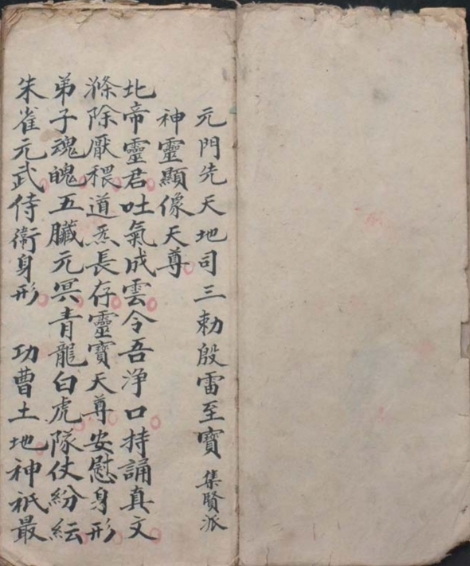 元門先天地司三勅殷雷至寶 集賢派
神靈顯像天尊
北帝靈君吐氣成雲令吾淨口持誦真文
滌除厭穢道炁長存靈寶天尊安慰身形
弟子魂魄五臟元冥青龍白虎隊仗紛紜
朱雀元武侍衛身形 功曹土地神祇最